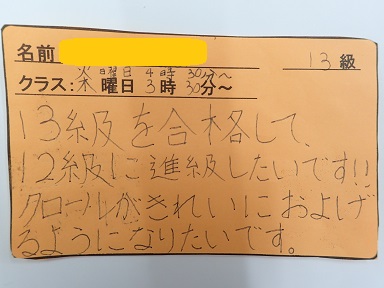 名前 13級
火曜日4時30分～
クラス：木曜日3時30分～
13級を合格して、
12級に進級したいです!!
クロールがきれいにおよげ
るようになりたいです。